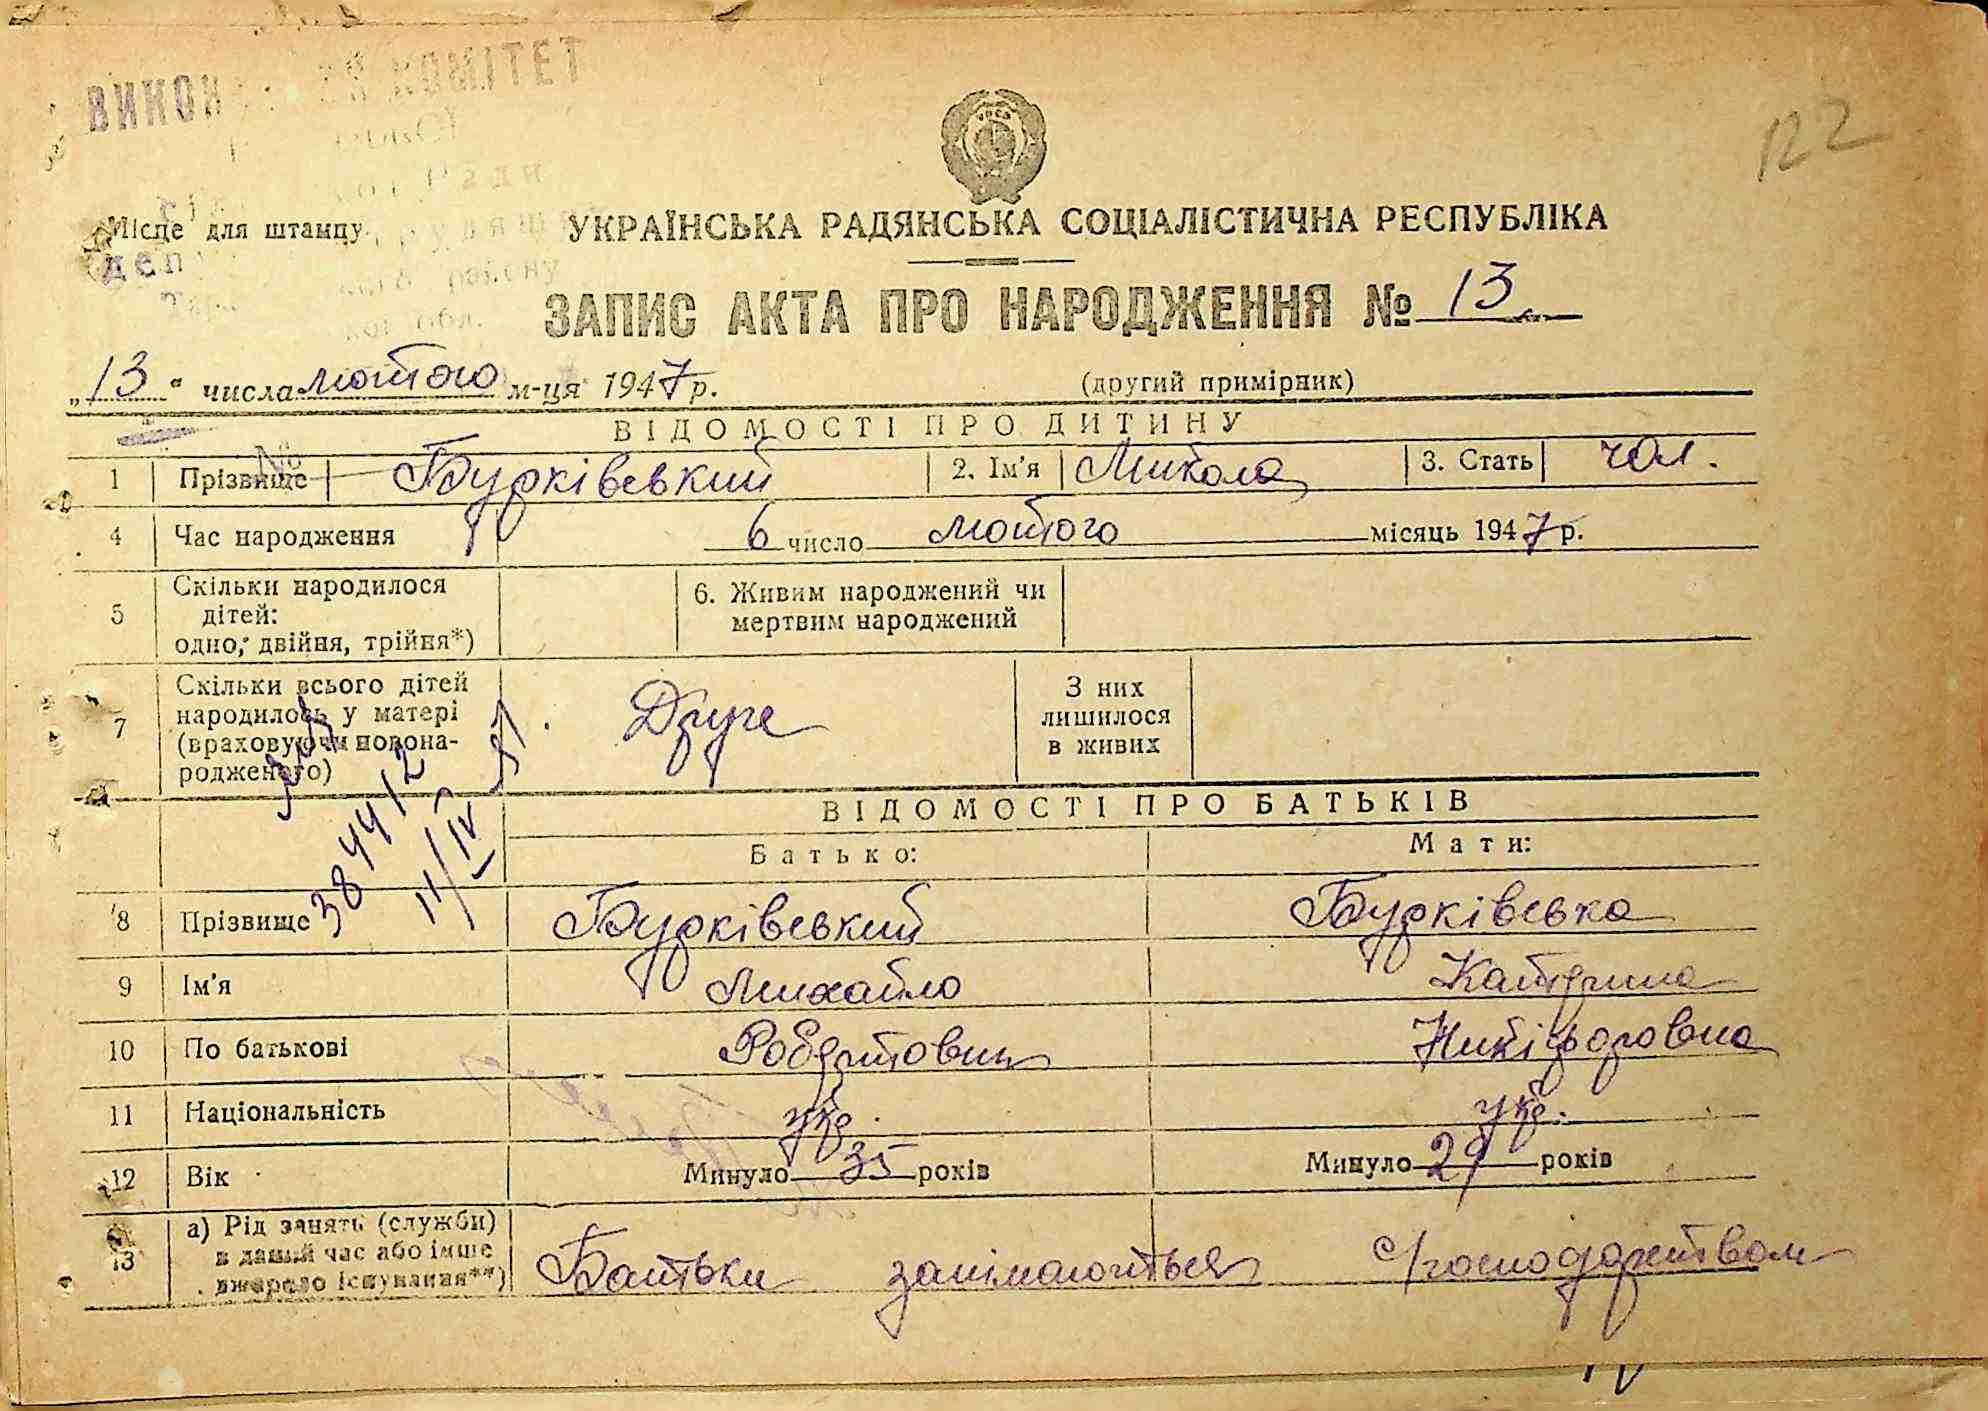 ВИКОН КОМІТЕТ
122
УРСР
Місце для штампу
УКРАЇНСЬКА РАДЯНСЬКА СОЦІАЛІСТИЧНА РЕСПУБЛІКА
деп району
обл.
ЗАПИС АКТА ПРО НАРОДЖЕННЯ № 13
„13“ числа лютого м-ця 1947 р. (другий примірник)
ВІДОМОСТІ ПРО ДИТИНУ
№
1 Прізвище Бурківський 2. Ім'я Микола 3. Стать чол.
4 Час народження 6 число лютого місяць 1947 р.
5 Скільки народилося дітей: одно, двійня, трійня*) 6. Живим народжений чи мертвим народжений
7 Скільки всього дітей народилось у матері (враховуючи новонародженого) Друге З них лишилося в живих
384412
11/IV 51.
ВІДОМОСТІ ПРО БАТЬКІВ
Батько: Мати:
8 Прізвище Бурківський Бурківська
9 Ім'я Михайло Катерина
10 По батькові Робертович Никіфоровна
11 Національність укр. укр.
12 Вік Минуло 35 років Минуло 29 років
13 а) Рід занять (служби) в даний час або інше джерело існування**) Батьки занімаються г/господарством